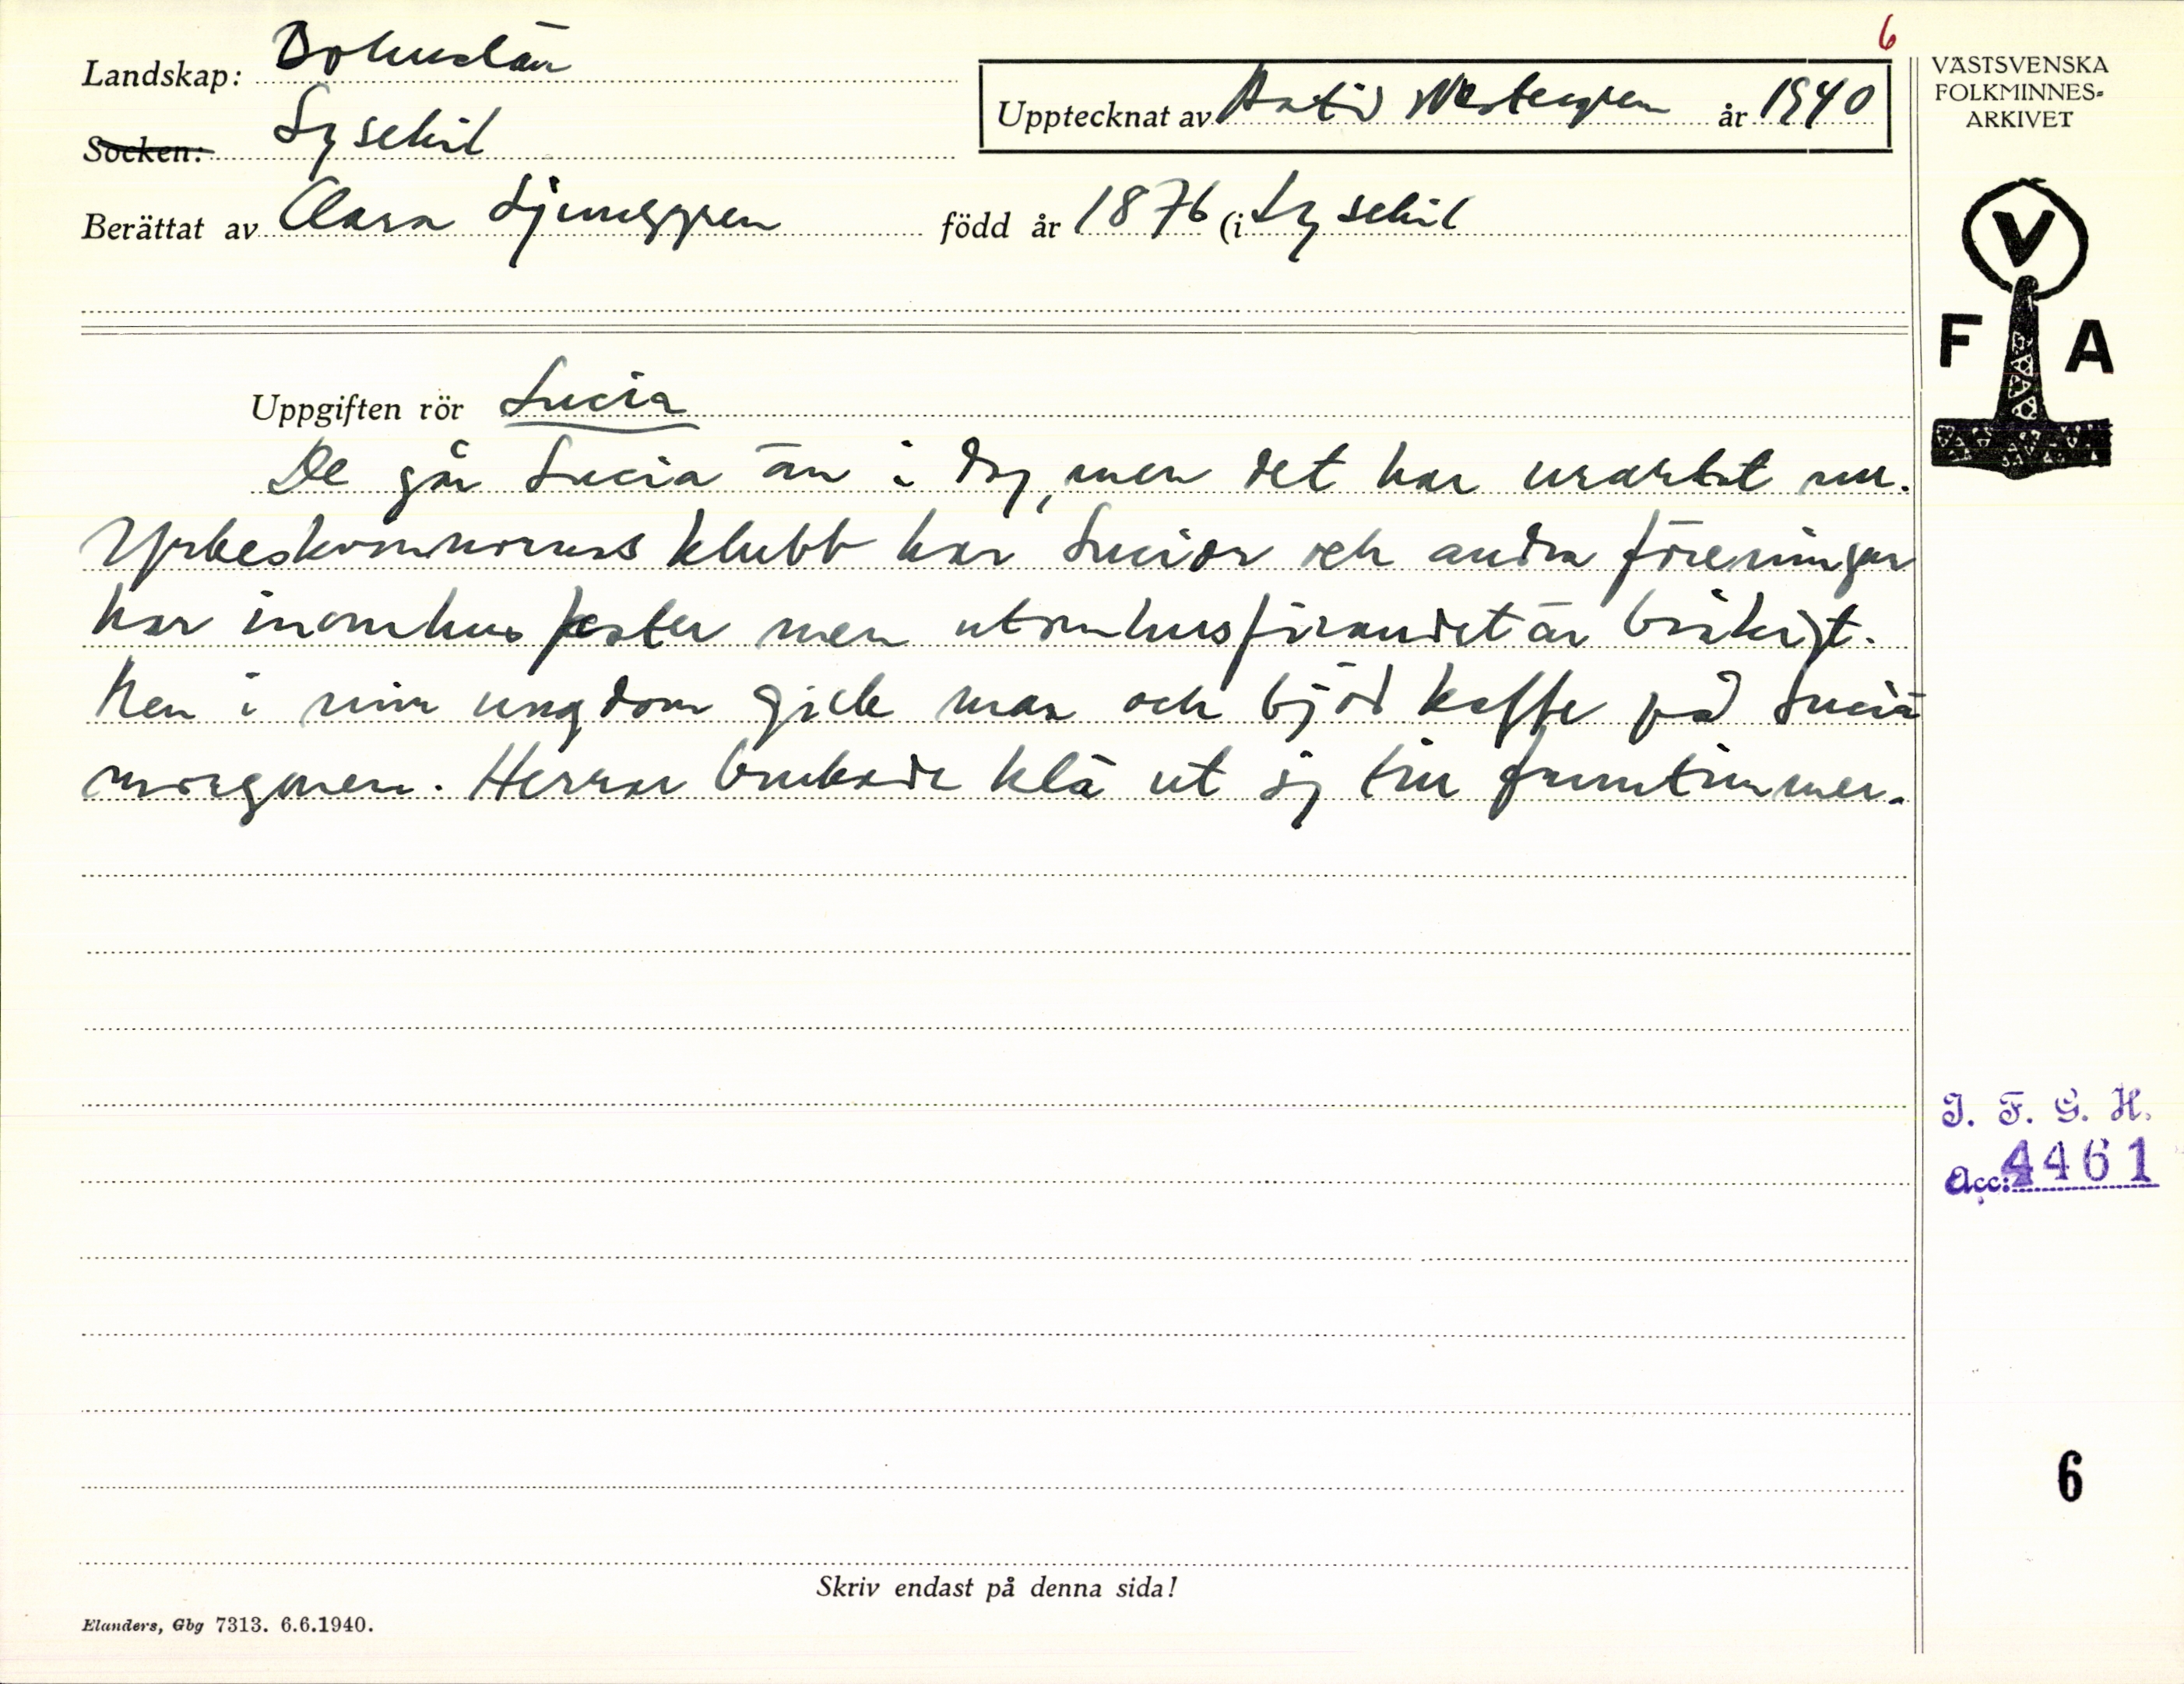 6
Landskap: Bohuslän
Upptecknat av Astid Westergren år 1940
Socken: Lysekil
Berättat av Clara Ljunggren född år 1876 (i Lysekil
VÄSTSVENSKA
FOLKMINNES-
ARKIVET
V
F A
Uppgiften rör Lucia
De går Lucia än i dag, men det har urartat nu.
Yrkeskvinnornas klubb har Lucior och andra föreningar
har inomhus fester men utomhusfirandet är bråkigt.
Men i min ungdom gick man och bjöd kaffe på Lucia
morgonen. Herrar brukade klä ut sig till fruntimmer.
I. F. G. H.
Acc: 4461
6
Skriv endast på denna sida!
Elanders, Gbg 7313. 6.6.1940.